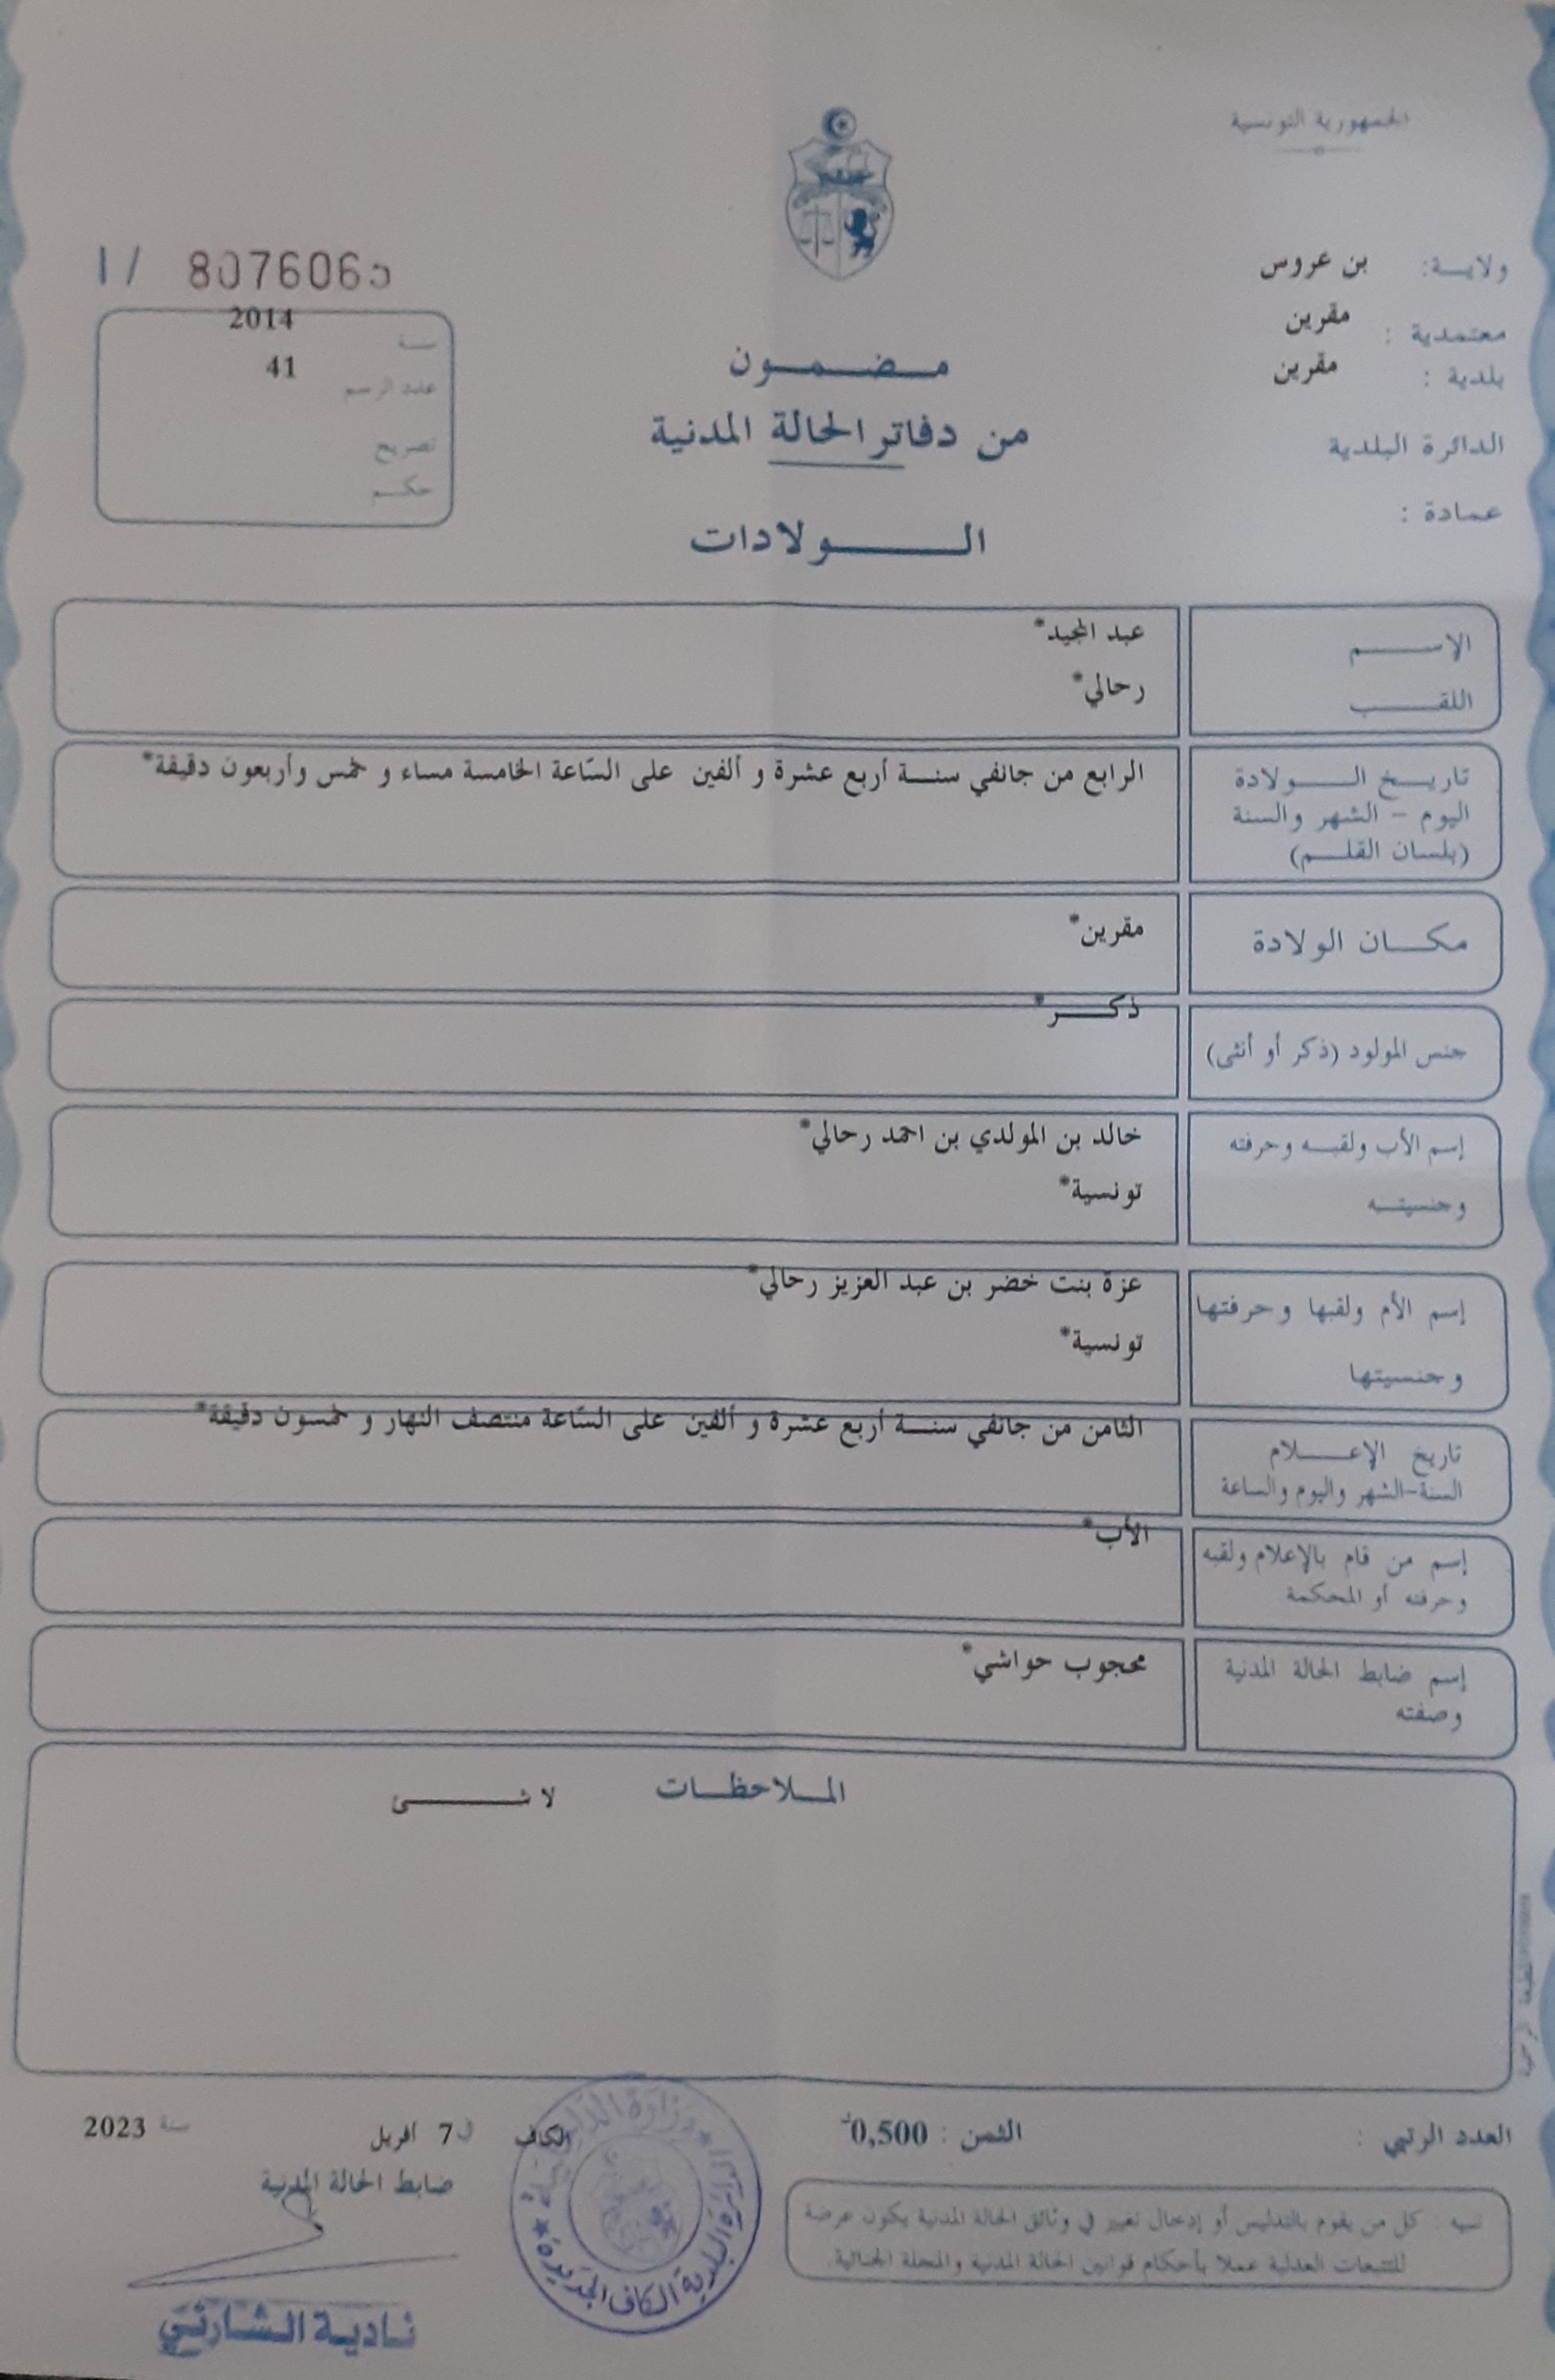 الجمهورية التونسية
ولايــة: بن عروس
معتمدية : مقرين
بلدية : مقرين
الدائرة البلدية
عمادة :
I / 8076065
سنة 2014
عدد الرسم 41
تصريح
حكم
مضمون
من دفاتر الحالة المدنية
الولادات
الاسم عبد المجيد*
اللقب رحالي*
تاريخ الولادة الرابع من جانفي سنة أربع عشرة و ألفين على السّاعة الخامسة مساء و خمس وأربعون دقيقة*
اليوم - الشهر والسنة
(بلسان القلم)
مكان الولادة مقرين*
جنس المولود (ذكر أو أنثى) ذكر*
إسم الأب ولقبه وحرفته خالد بن المولدي بن احمد رحالي*
وجنسيته تونسية*
إسم الأم ولقبها وحرفتها عزة بنت خضر بن عبد العزيز رحالي*
وجنسيتها تونسية*
تاريخ الإعلام الثامن من جانفي سنة أربع عشرة و ألفين على السّاعة منتصف النهار و خمسون دقيقة*
السنة-الشهر واليوم والساعة
إسم من قام بالإعلام ولقبه الأب*
وحرفته أو المحكمة
إسم ضابط الحالة المدنية محجوب حواشي*
وصفته
الملاحظات لا شئ
العدد الرتبي :
الثمن : 0,500د
الكاف في 7 أفريل سنة 2023
ضابط الحالة المدنية
تنبيه : كل من يقوم بالتدليس أو إدخال تغيير في وثائق الحالة المدنية يكون عرضة
للتتبعات العدلية عملا بأحكام قوانين الحالة المدنية والمجلة الجنائية.
وزارة الداخلية
الدائرة البلدية الكاف الجديدة
نادية الشارني